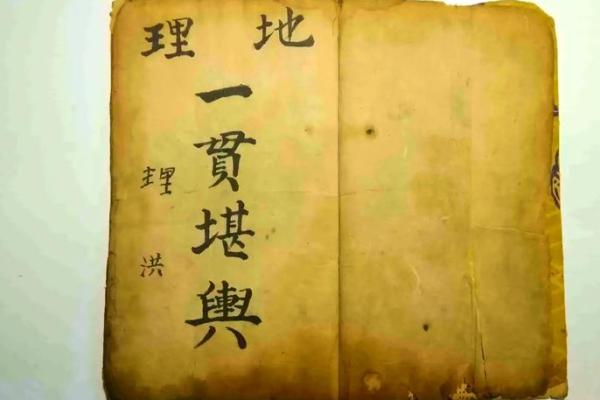 地理
一貫堪輿
理洪